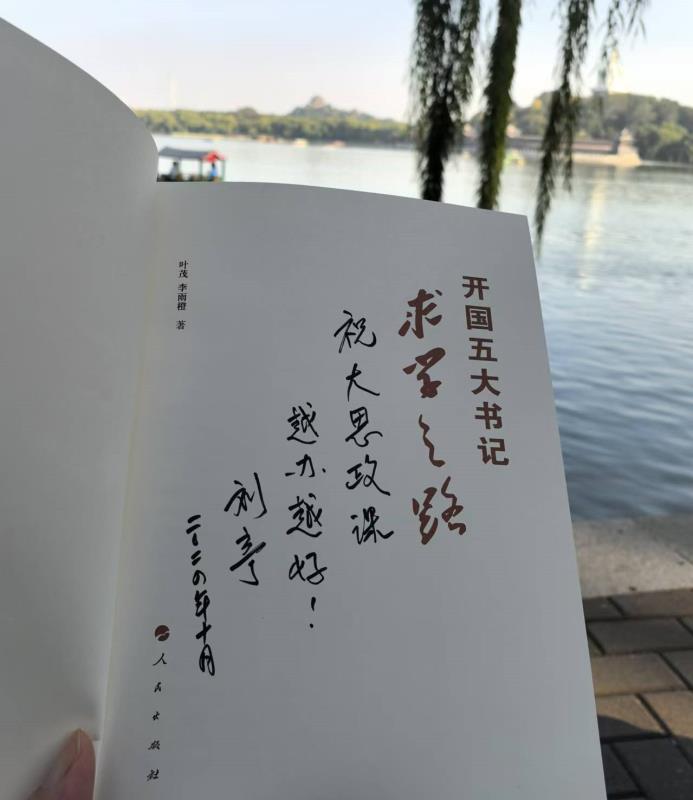 开国五大书记
求学之路
祝大思政课
越办越好！
刘亭
叶茂 李雨橙 著
人民出版社